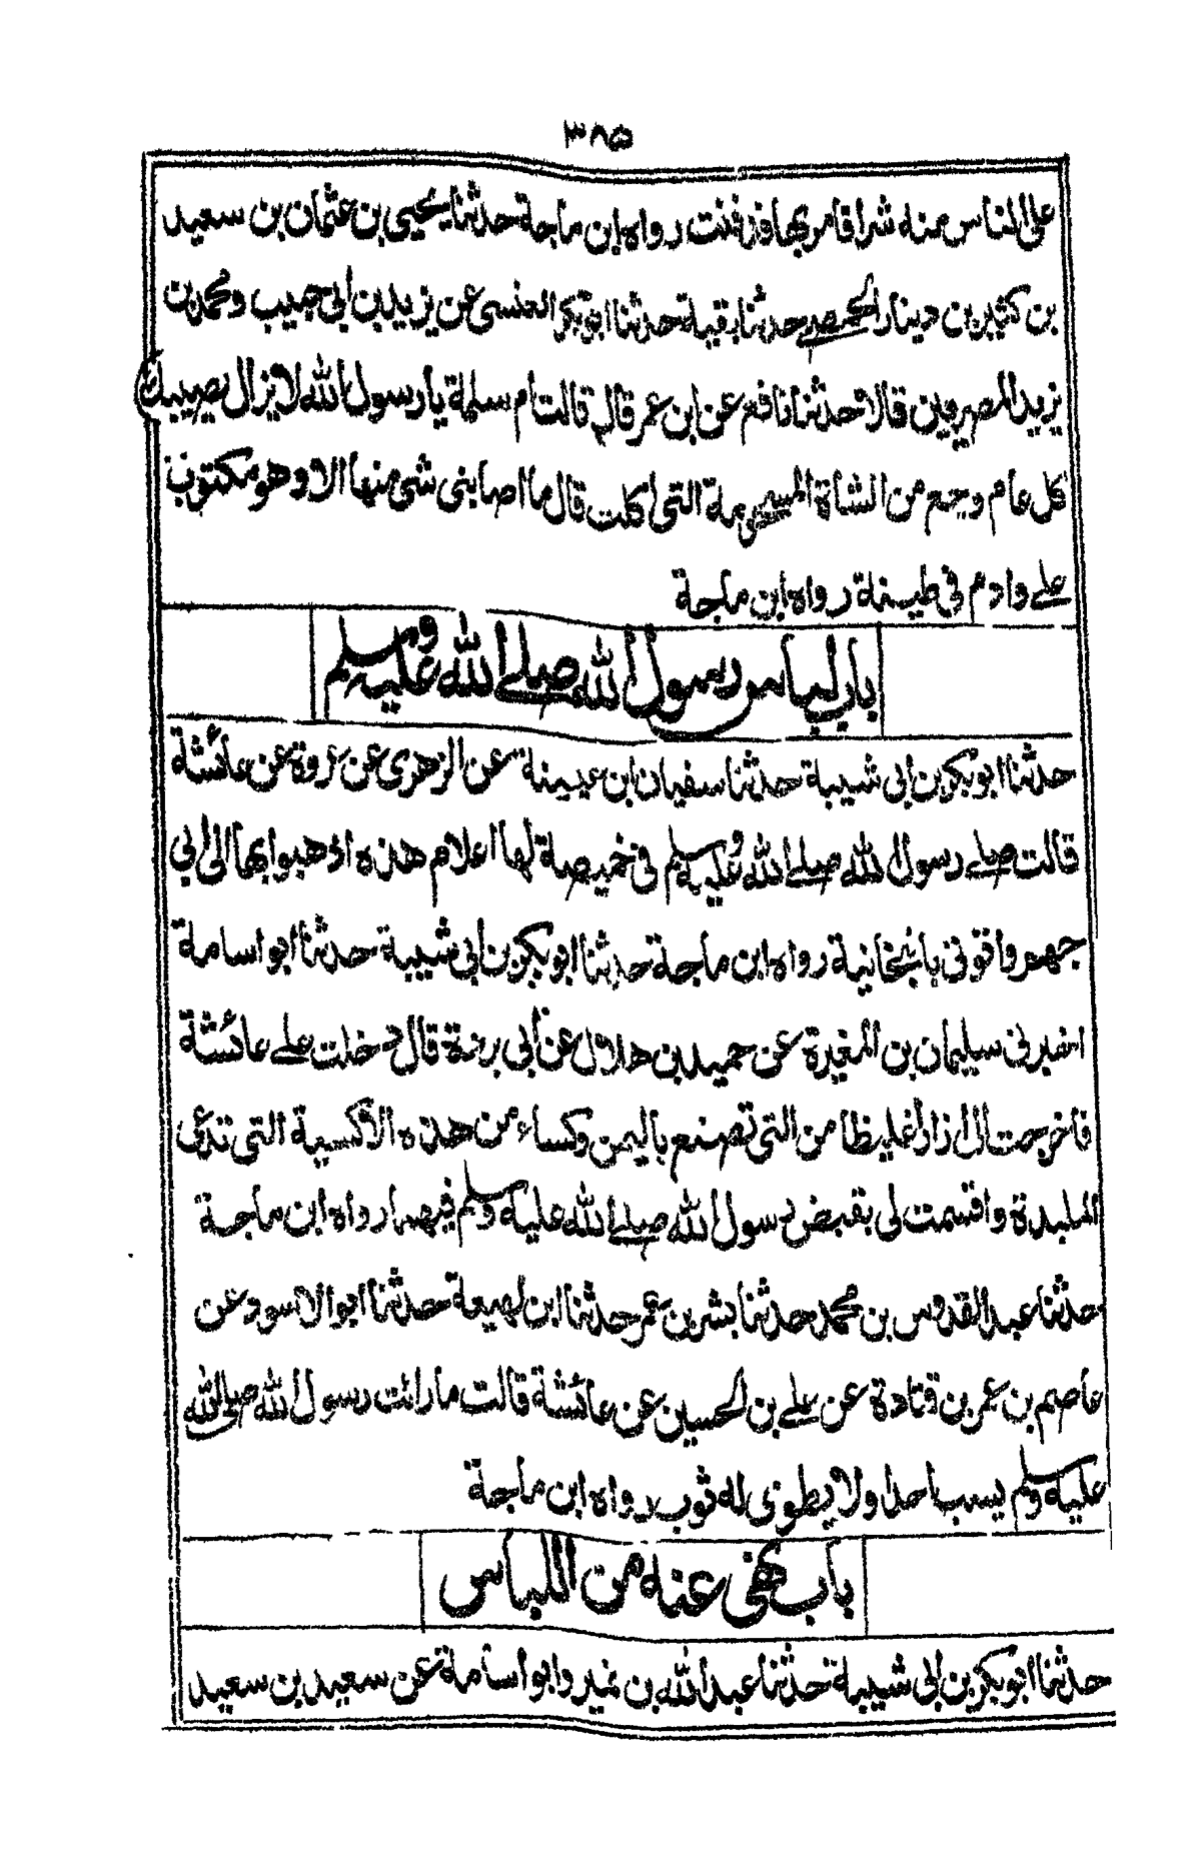 ٣٨٥
على الناس منه شرا قامر بها فدفنت رواه ابن ماجة حدثنا يحيى بن عثمان بن سعيد
بن كثير بن دينار الحمصي حدثنا بقية حدثنا ابو بكر العنسى عن يزيد بن ابى حبيب ومحمد بن
يزيد المصريين قالا حدثنا نافع عن ابن عمر قال قالت ام سلمة يا رسول الله لا يزال يصيبك
كل عام وجع من الشاة المسمومة التى اكلت قال ما اصابنى شىء منها الا وهو مكتوب
على وادم فى طينة رواه ابن ماجة
باب لباس رسول الله صلى الله عليه وسلم
حدثنا ابو بكر بن ابى شيبة حدثنا سفيان ابن عيينة عن الزهرى عن عروة عن عائشة
قالت صلى رسول الله صلى الله عليه وسلم فى خميصة لها اعلام هذه اذهبوا بها الى ابى
جهم واتونى بانبخانية رواه ابن ماجة حدثنا ابو بكر بن ابى شيبة حدثنا ابو اسامة
اخبرنى سليمان بن المغيرة عن حميد بن هلال عن ابى بردة قال دخلت على عائشة
فاخرجت الى ازارا غليظا من التى تصنع باليمن وكساء من هذه الاكسية التى تدعى
الملبدة واقسمت لى بقبض رسول الله صلى الله عليه وسلم فيهما رواه ابن ماجة
حدثنا عبد القدوس بن محمد حدثنا بشر بن عمر حدثنا ابن لهيعة حدثنا ابو الاسود عن
عاصم بن عمر بن قتادة عن على بن الحسين عن عائشة قالت ما رائت رسول الله صلى الله
عليه وسلم يسب احدا ولا يطوى له ثوب رواه ابن ماجة
باب نهى عنه من اللباس
حدثنا ابو بكر بن ابى شيبة حدثنا عبد الله بن نمير وابو اسامة عن سعيد بن سعيد